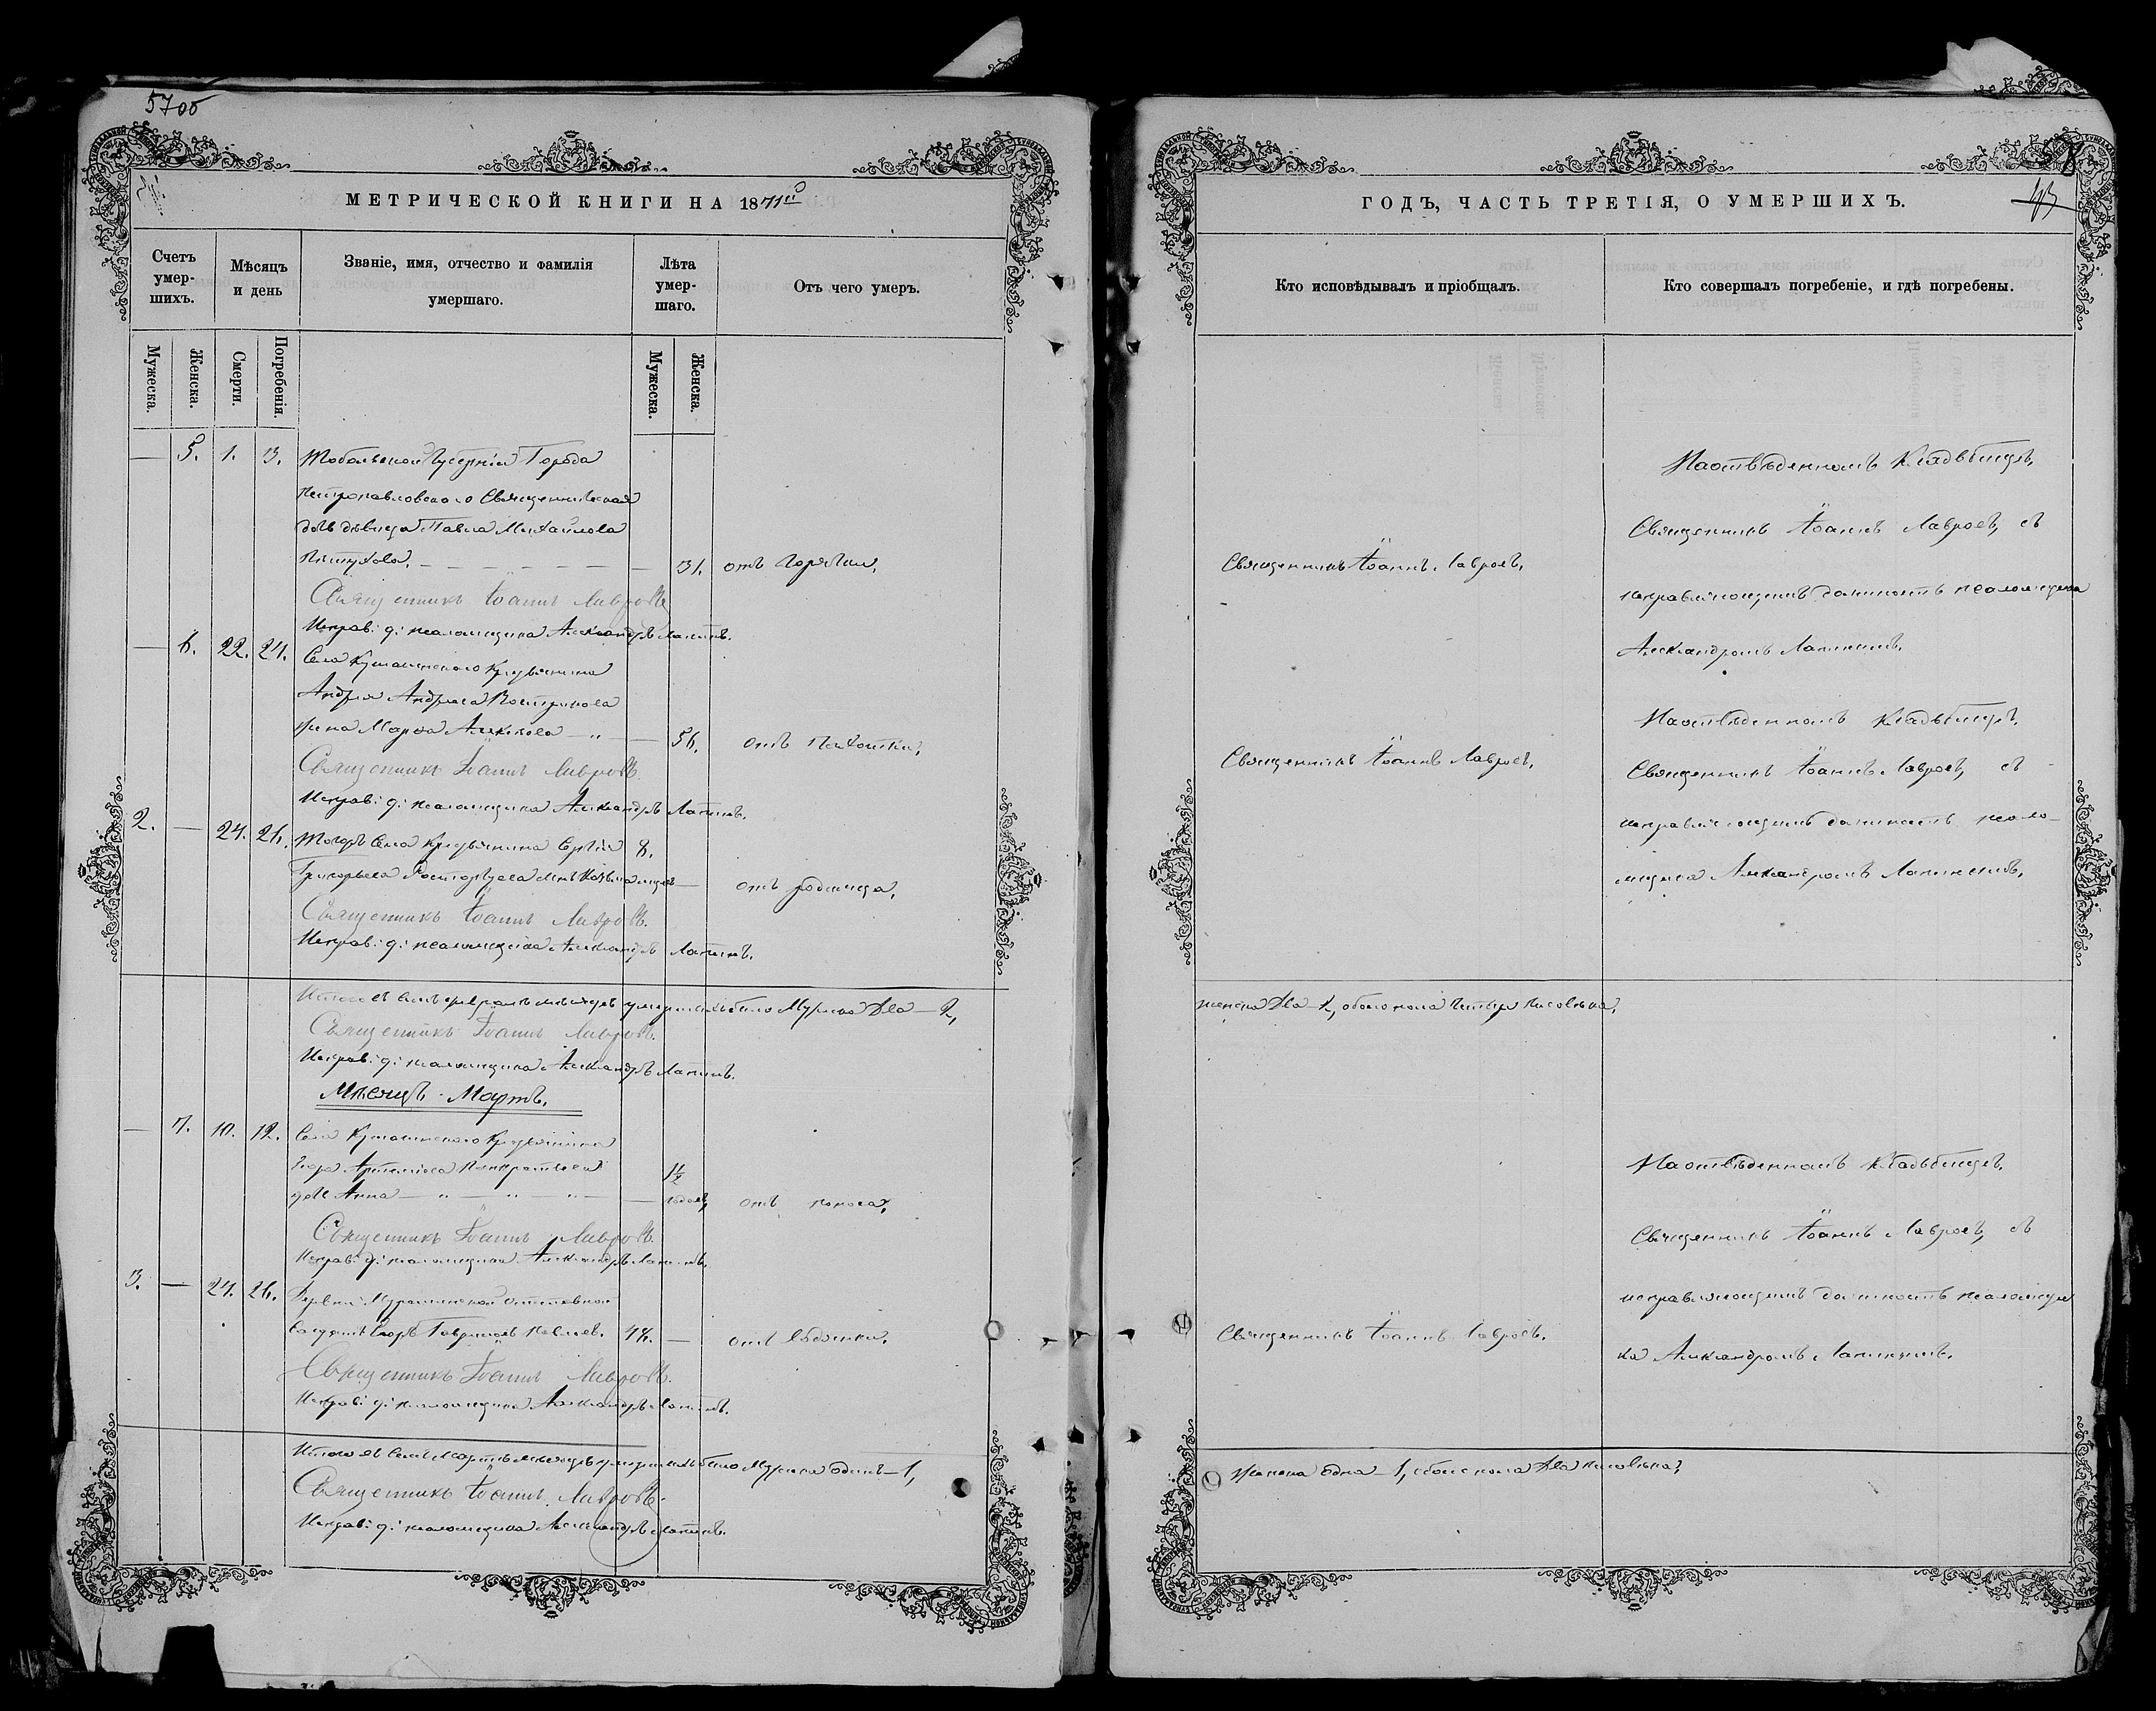 57 об
МЕТРИЧЕСКОЙ КНИГИ НА 1871й
Счетъ умер-шихъ.
Мѣсяцъ и день
Званіе, имя, отчество и фамилія умершаго.
Лѣта умер-шаго.
Отъ чего умеръ.
Мужеска.
Женска.
Смерти.
Погребенія.
Мужеска.
Женска.
— 5. 1. 3. Тобольской Губерніи Города
Петропавловска Священническая
дочь дѣвица Павла Михайлова
Пѣтухова. — — 31. отъ горячки,
Священникъ Іоаннъ Лавровъ
Исправ: д: псаломщика Александръ Лапинъ.
— 6. 22. 24. Села Крестьянина
Андрея Андреева Вострикова
жена Марѳа — " — — 56. отъ
Священникъ Іоаннъ Лавровъ.
Исправ: д: псаломщика Александръ Лапинъ.
2. — 24. 26. Тогоже Села Крестьянина Сергѣя 8.
Григорьева сынъ Козьма — отъ родимца,
Священникъ Іоаннъ Лавровъ.
Исправ: д: псаломщика Александръ Лапинъ.
Итого въ семъ февралѣ мѣсяцѣ умершихъ было Мужска два — 2,
Священникъ Іоаннъ Лавровъ.
Исправ: д: псаломщика Александръ Лапинъ.
Мѣсяцъ Мартъ.
— 7. 10. 12. Села Крестьянина
Панкратьева 1½
дочь Анна — " — " — " — — годовъ, отъ поноса,
Священникъ Іоаннъ Лавровъ.
Исправ: д: псаломщика Александръ Лапинъ.
3. — 24. 26. Деревни отставной
Солдатъ Егоръ Гавриловъ — отъ водянки.
Священникъ Іоаннъ Лавровъ.
Исправ: д: псаломщика Александръ Лапинъ.
Итого въ семъ Мартѣ мѣсяцѣ умершихъ было Мужска одинъ — 1,
Священникъ Іоаннъ Лавровъ.
Исправ: д: псаломщика Александръ Лапинъ.
ГОДЪ, ЧАСТЬ ТРЕТІЯ, О УМЕРШИХЪ.
Кто исповѣдывалъ и пріобщалъ.
Кто совершалъ погребеніе, и гдѣ погребены.
На отведенномъ кладбищѣ,
Священникъ Іоаннъ Лавровъ, съ
Священникъ Іоаннъ Лавровъ.
исправляющимъ должность псаломщика
Александромъ Лапинымъ.
На отведенномъ кладбищѣ,
Священникъ Іоаннъ Лавровъ.
Священникъ Іоаннъ Лавровъ, съ
исправляющимъ должность псало-
мщика Александромъ Лапинымъ.
женска два — 2, обоего пола четыре человѣка,
На отведенномъ кладбищѣ.
Священникъ Іоаннъ Лавровъ, съ
исправляющимъ должность псаломщи
Священникъ Іоаннъ Лавровъ.
ка Александромъ Лапинымъ.
женска одна — 1, обоего пола два человѣка,